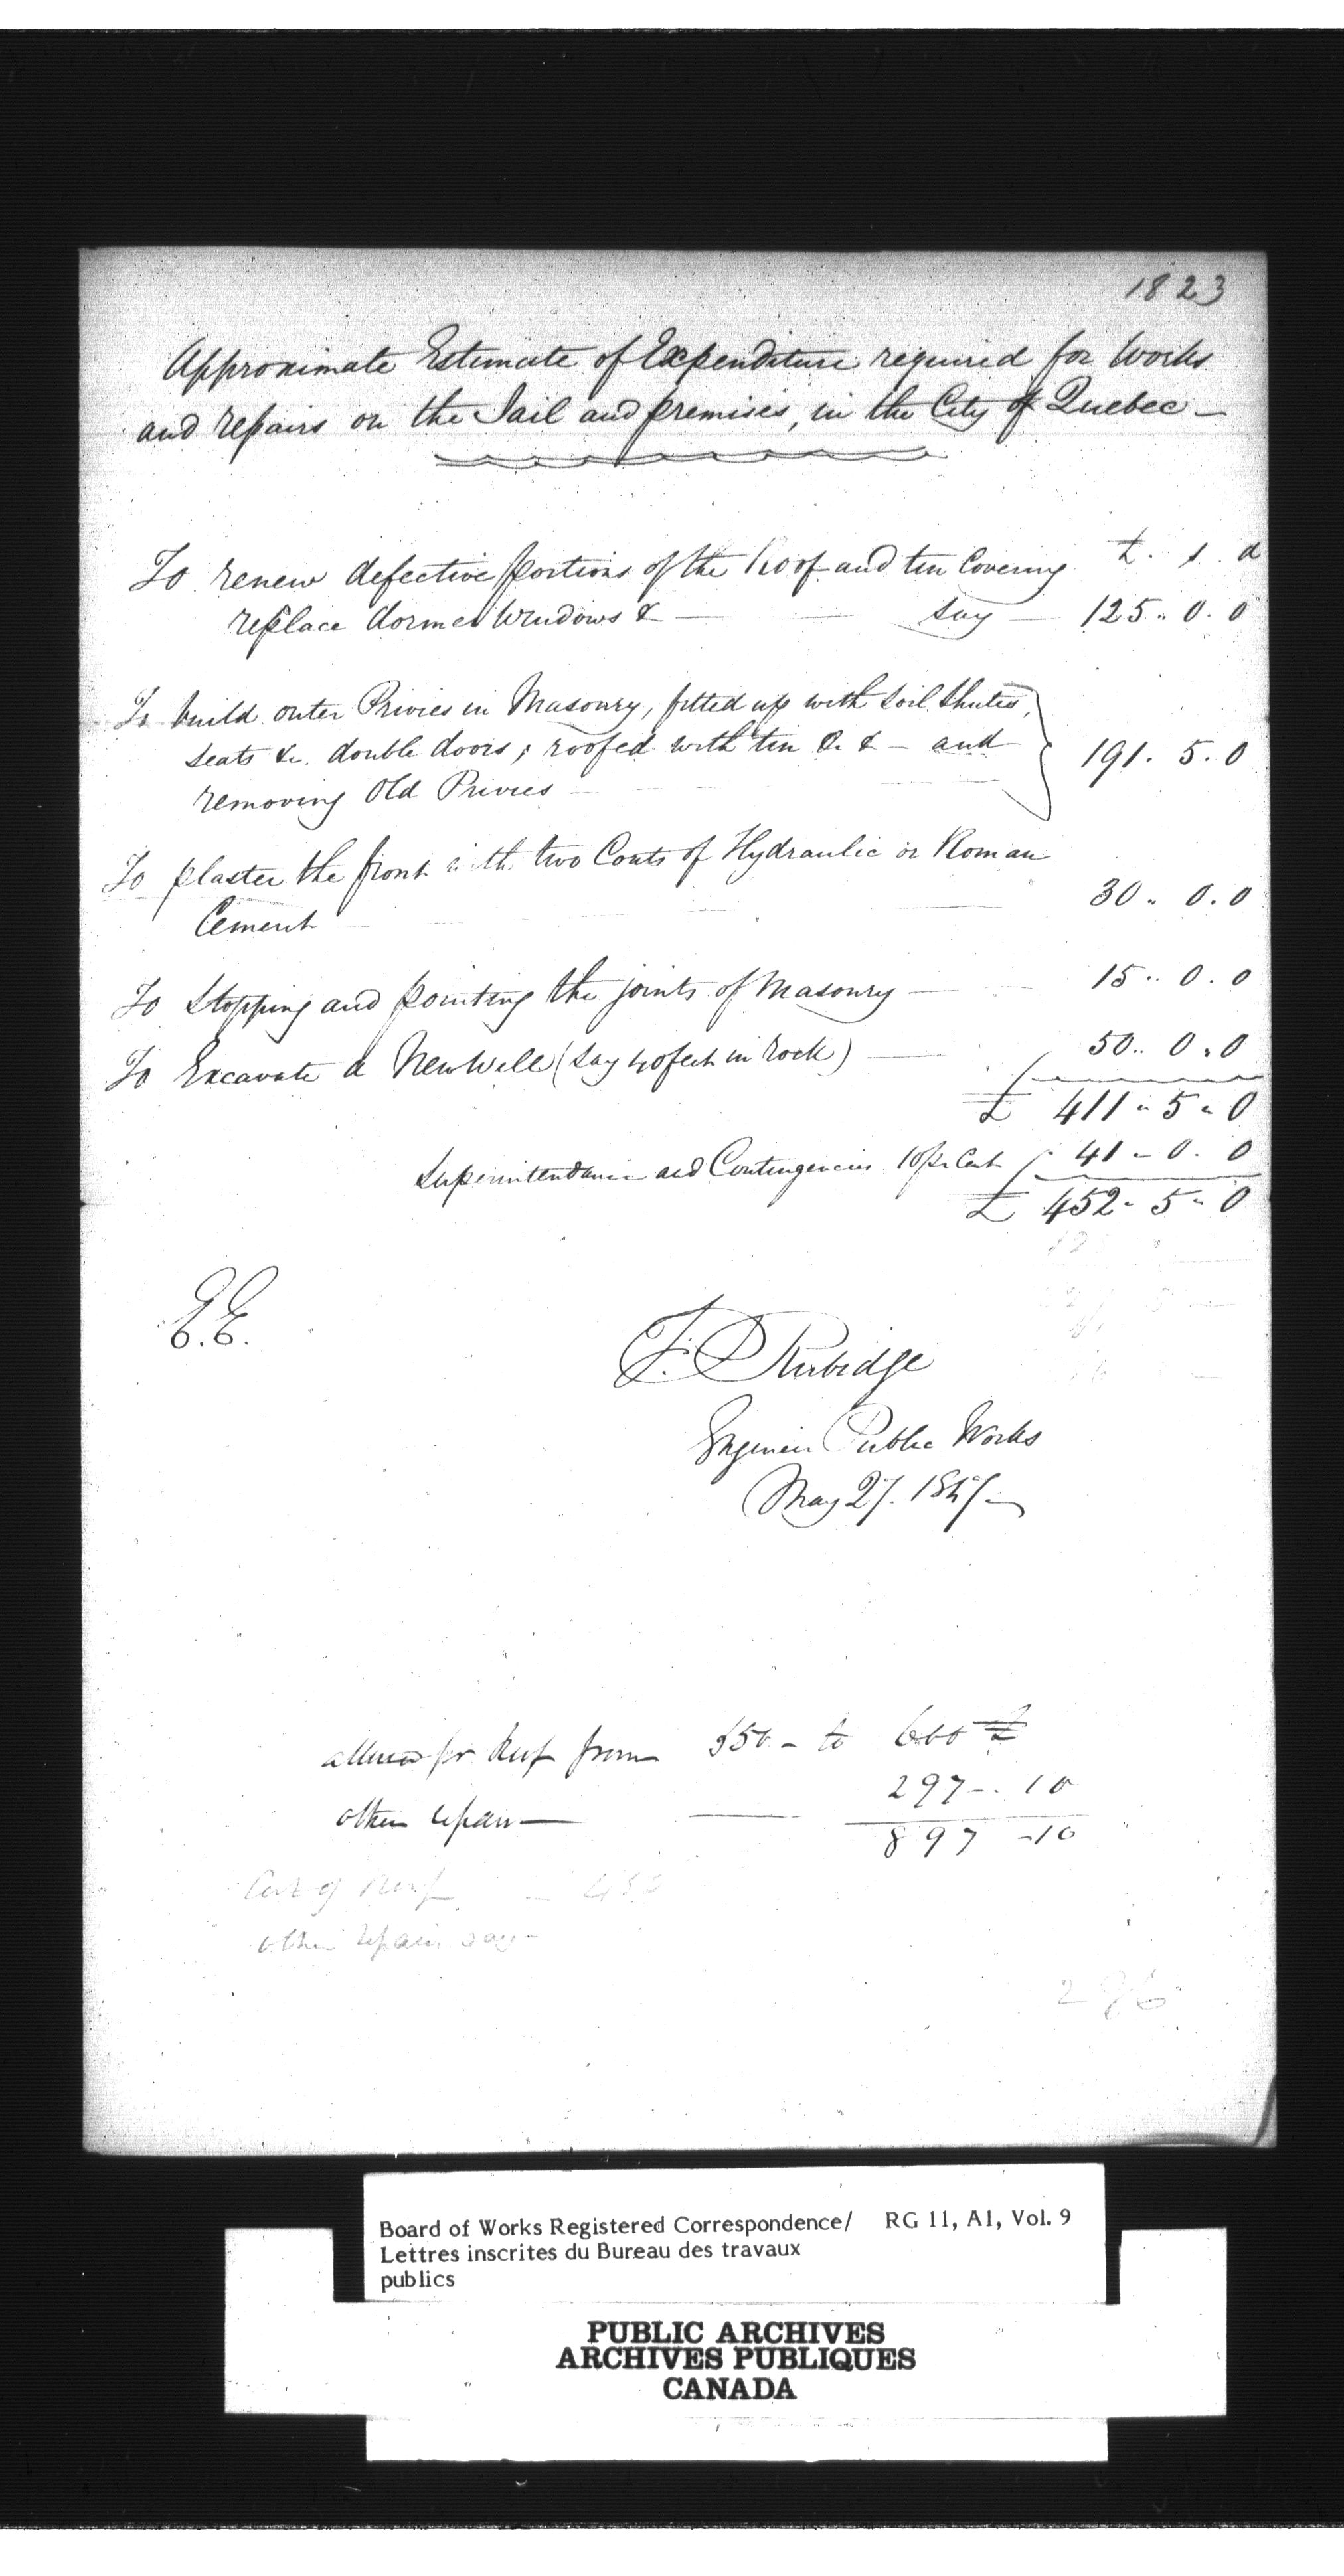 1823
Approximate Estimate of Expenditure required for Works
and repairs on the Jail and premises, in the City of Quebec —
£. s. d
To renew defective portions of the Roof and tin Covering
replace dormer Windows & — say — 125 .. 0 . 0
To build outer Privies in Masonry, fitted up with soil shutes,
seats &c. double doors, roofed with tin &c & — and
removing Old Privies — 191 . 5 . 0
To plaster the front with two Coats of Hydraulic or Roman
Cement — 30 .. 0 . 0
To Stopping and pointing the joints of Masonry — 15 .. 0 . 0
To Excavate a New Well (say 40 feet in rock) — 50 .. 0 . 0
£ 411 " 5 " 0
Superintendance and Contingencies 10 pr Cent 41 - 0 . 0
£ 452 - 5 - 0
E.E.
F. P. Rubidge
Engineer Public Works
May 27. 1847 —
allowed for Roof from 550 - to 600 £
297 - . 10
other repairs —
897 - 10
Cost of Roof
other repairs say -
296
Board of Works Registered Correspondence/ RG 11, A1, Vol. 9
Lettres inscrites du Bureau des travaux
publics
PUBLIC ARCHIVES
ARCHIVES PUBLIQUES
CANADA